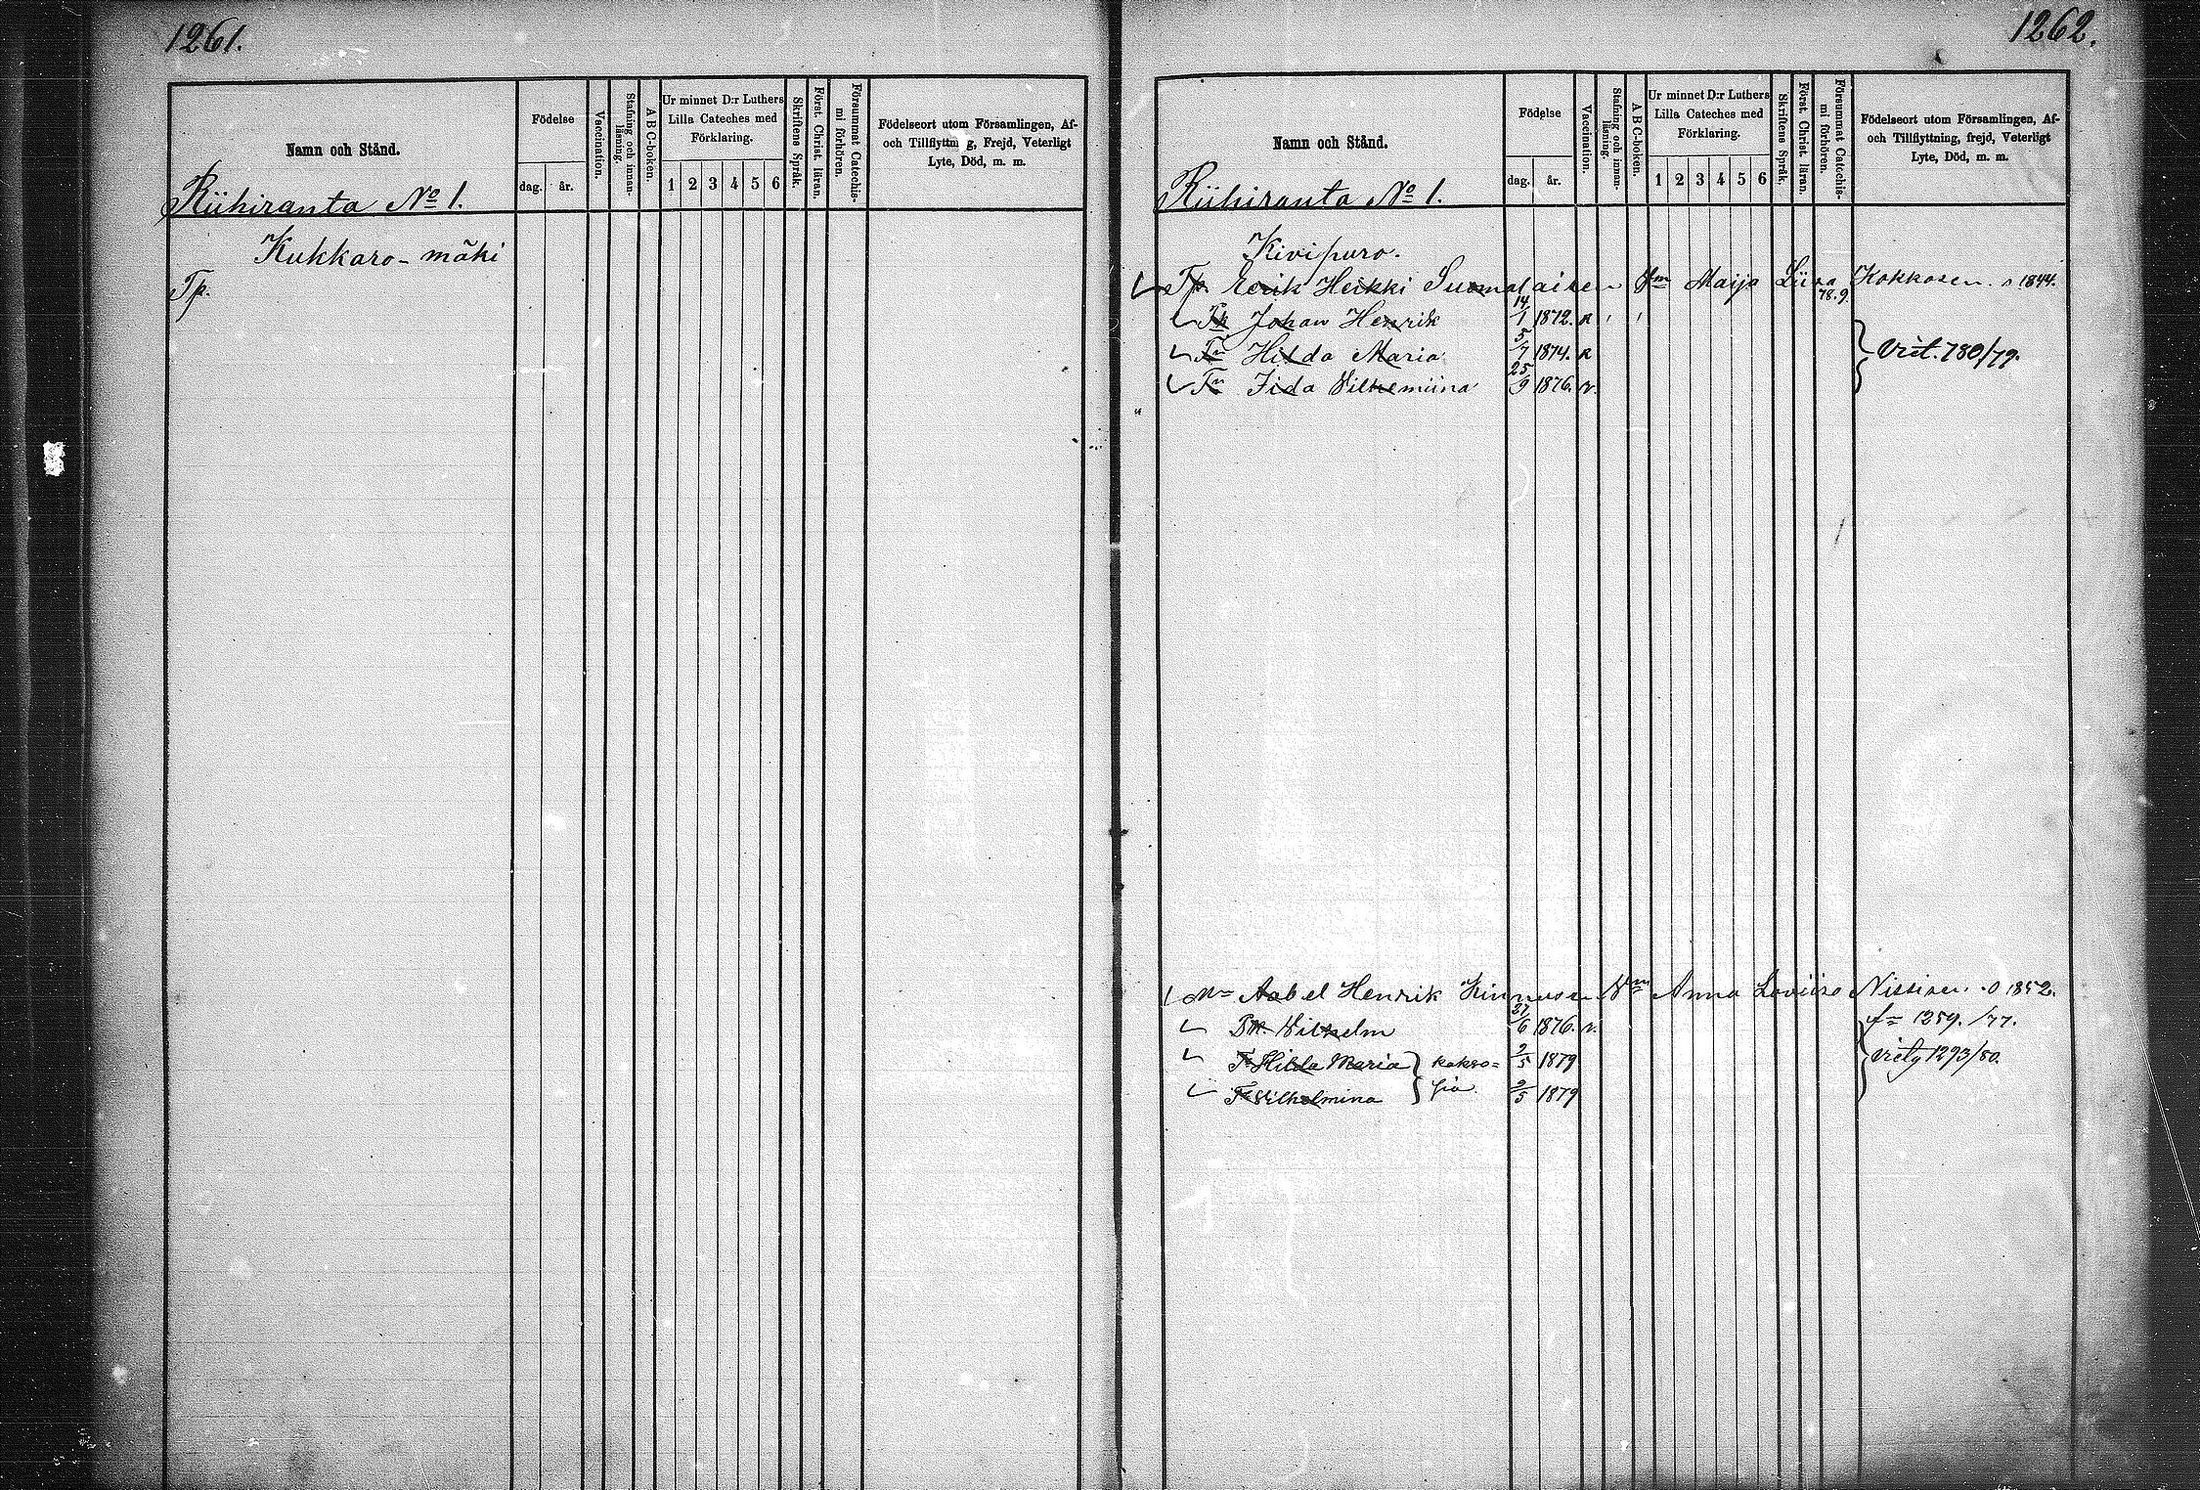 1261.
Namn och Stånd.
Födelse
dag.
år.
Vaccination.
Stafning och innan-
läsning.
A B C-boken.
Ur minnet D:r Luthers
Lilla Cateches med
Förklaring.
1 2 3 4 5 6
Skriftens Språk.
Först. Christ. läran.
Försummat Catechis-
mi förhören.
Födelseort utom Församlingen, Af-
och Tillflyttning, Frejd, Veterligt
Lyte, Död, m. m.
Riihiranta No 1.
Kukkaro-mäki
Tp.
1262.
Namn och Stånd.
Födelse
dag.
år.
Vaccination.
Stafning och innan-
läsning.
A B C-boken.
Ur minnet D:r Luthers
Lilla Cateches med
Förklaring.
1 2 3 4 5 6
Skriftens Språk.
Först. Christ. läran.
Försummat Catechis-
mi förhören.
Födelseort utom Församlingen, Af-
och Tillflyttning, frejd, Veterligt
Lyte, Död, m. m.
Riihiranta No 1.
Kivipuro.
Tp. Eerik Heikki Suomalainen Vm Maija Liisa Kokkosen 1844.
78.9
Johan Henrik 14/1 1872. R
Tr Hilda Maria 5/7 1874. R
Tr Iida Vilhemiina 25/9 1876. v.
Vrit. 780/79.
Mn Aabel Henrik Kinnusen Vm Anna Loviisa Nissisen. 1852.
Vilhelm 27/6 1876. v. 1259./77.
Tr Hilda Maria } kakso= 2/5 1879 1293/80.
Tr Vilhelmina } sia 2/5 1879